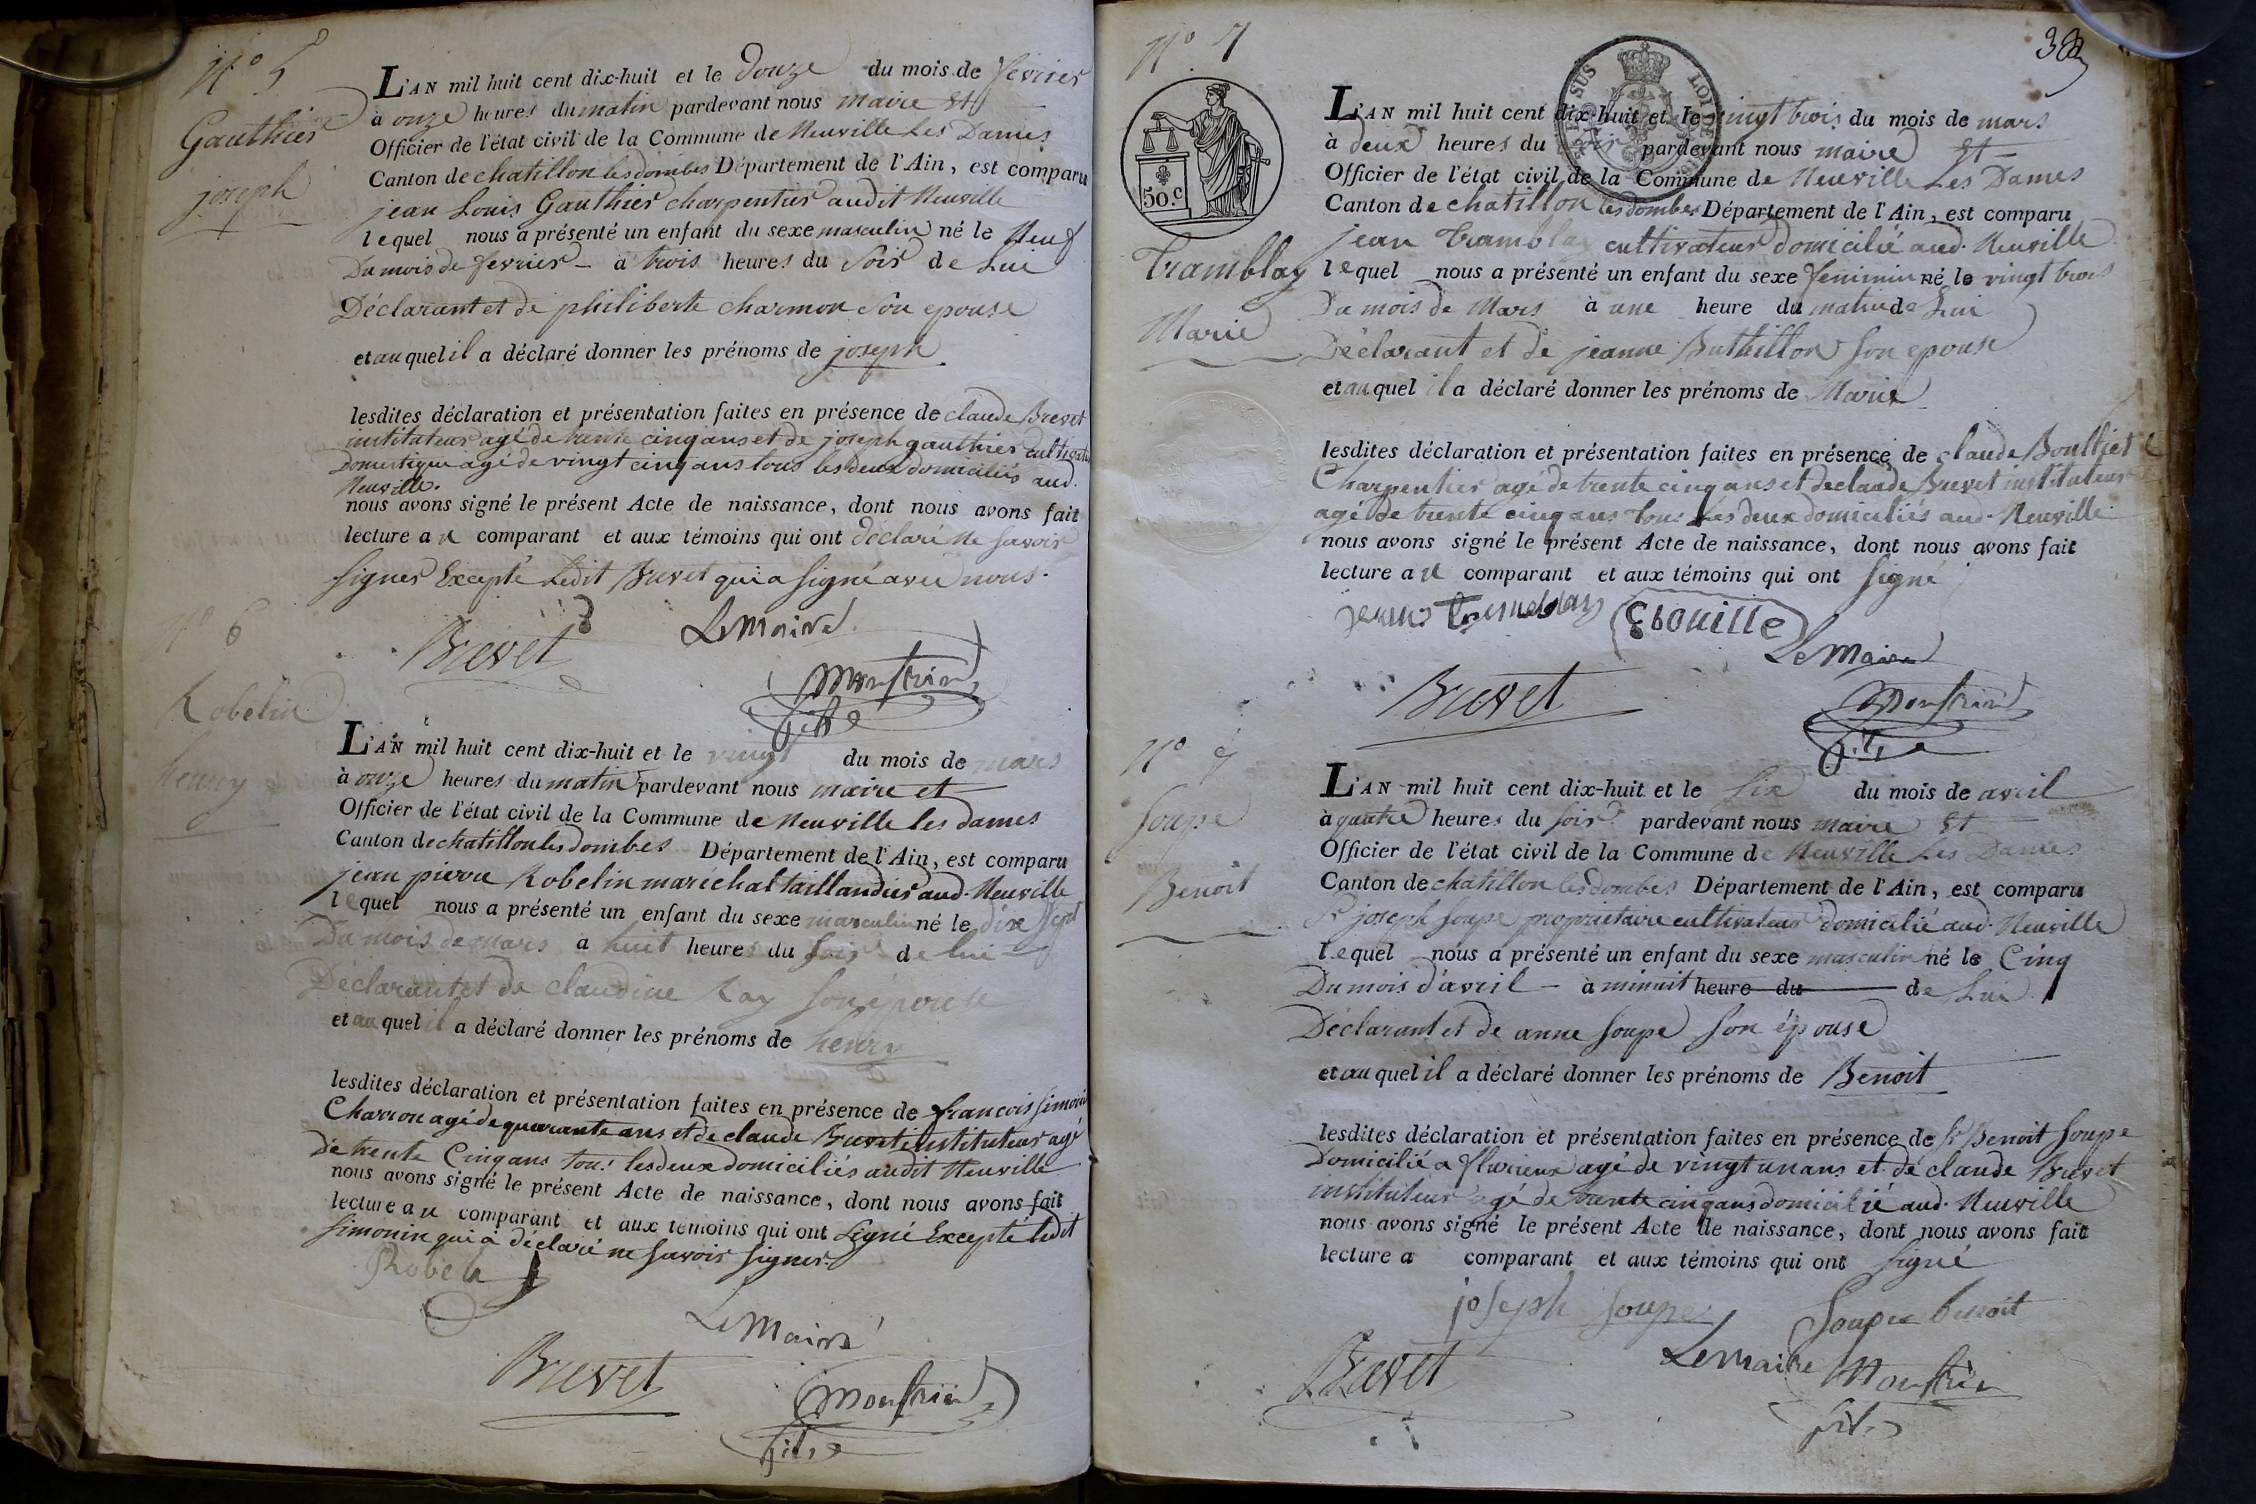 N.º 5
Gauthier
joseph
L'AN mil huit cent dix-huit et le Douze du mois de fevrier
à onze heures du matin pardevant nous maire Et
Officier de l'état civil de la Commune de Neuville Les Dames
Canton de chatillon les dombes Département de l'Ain, est comparu
jean Louis Gauthier charpentier audit Neuville
lequel nous a présenté un enfant du sexe masculin né le Neuf
Du mois de fevrier - à trois heures du Soir de Lui
Déclarant et de philiberte charmon Son epouse
et auquel il a déclaré donner les prénoms de joseph
lesdites déclaration et présentation faites en présence de claude Brevet
instituteur agé de trente cinq ans et de joseph gauthier
Domestique agé de vingt cinq ans tous les deux domiciliés aud.
Neuville.
nous avons signé le présent Acte de naissance, dont nous avons fait
lecture au comparant et aux témoins qui ont déclaré Ne Savoir
Signer Excepté Ledit Brevet qui a Signé avec nous.
Brevet
Le Maire
Monstrin
fils
N.º 6
Robelin
henry
L'AN mil huit cent dix-huit et le vingt du mois de mars
à onze heures du matin pardevant nous maire et
Officier de l'état civil de la Commune de Neuville les dames
Canton de chatillon les dombes Département de l'Ain, est comparu
jean pierre Robelin maréchal taillandier aud. Neuville
lequel nous a présenté un enfant du sexe masculin né le dix Sept
Du mois de mars à huit heures du Soir de lui
Déclarant et de claudine Ray Son épouse
et auquel il a déclaré donner les prénoms de henry
lesdites déclaration et présentation faites en présence de francois Simonin
Charron agé de quarante ans et de claude Brevet instituteur agé
de trente Cinq ans tous les deux domiciliés audit Neuville
nous avons signé le présent Acte de naissance, dont nous avons fait
lecture au comparant et aux témoins qui ont Signé Excepté ledit
Simonin qui a déclaré ne Savoir Signer.
Le Maire
Brevet
Monstrin
fils
N.º 7
50.c
Tramblay
Marie
L'AN mil huit cent dix-huit et le vingt trois du mois de mars
à deux heures du soir pardevant nous maire Et
Officier de l'état civil de la Commune de Neuville Les Dames
Canton de chatillon les dombes Département de l'Ain, est comparu
jean Tramblay cultivateur domicilié aud. Neuville
lequel nous a présenté un enfant du sexe feminin né le vingt trois
Du mois de Mars à une heure du matin de Lui
Déclarant et de jeanne Buthillon Son epouse
et auquel il a déclaré donner les prénoms de Marie
lesdites déclaration et présentation faites en présence de claude
Charpentier agé de trente cinq ans et de claude Brevet instituteur
agé de trente cinq ans tous Les deux domiciliés aud. Neuville
nous avons signé le présent Acte de naissance, dont nous avons fait
lecture au comparant et aux témoins qui ont Signé
Le Maire
Brevet
Monstrin
fils
Soupe
Benoit
L'AN mil huit cent dix-huit et le Six du mois de avril
à quatre heures du soir pardevant nous maire Et
Officier de l'état civil de la Commune de Neuville Les Dames
Canton de chatillon les dombes Département de l'Ain, est comparu
Sr joseph Soupe proprietaire cultivateur domicilié aud. Neuville
lequel nous a présenté un enfant du sexe masculin né le Cinq
Du mois d'avril - à minuit heure du de Lui
Déclarant et de anne Soupe Son épouse
et auquel il a déclaré donner les prénoms de Benoit
lesdites déclaration et présentation faites en présence de Sr Benoit Soupe
Domicilié a flurieux agé de vingt un ans et de claude Brevet
instituteur agé de trente cinq ans domicilié aud. Neuville
nous avons signé le présent Acte de naissance, dont nous avons fait
lecture a comparant et aux témoins qui ont Signé
joseph Soupe
Soupe benoit
Brevet
Le maire
Monstrin
fils